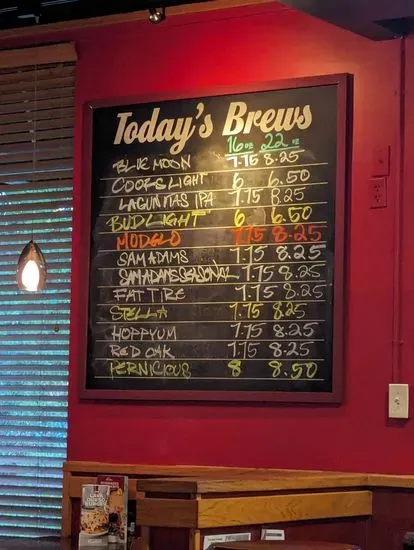 Today's Brews
16oz 22oz
BLUE MOON 7.75 8.25
COORS LIGHT 6 6.50
LAGUNITAS IPA 7.75 8.25
BUD LIGHT 6 6.50
MODELO 7.75 8.25
SAM ADAMS 7.75 8.25
SAM ADAMS SEASONAL 7.75 8.25
FAT TIRE 7.75 8.25
STELLA 7.75 8.25
HOPPYUM 7.75 8.25
RED OAK 7.75 8.25
PERNICIOUS 8 8.50